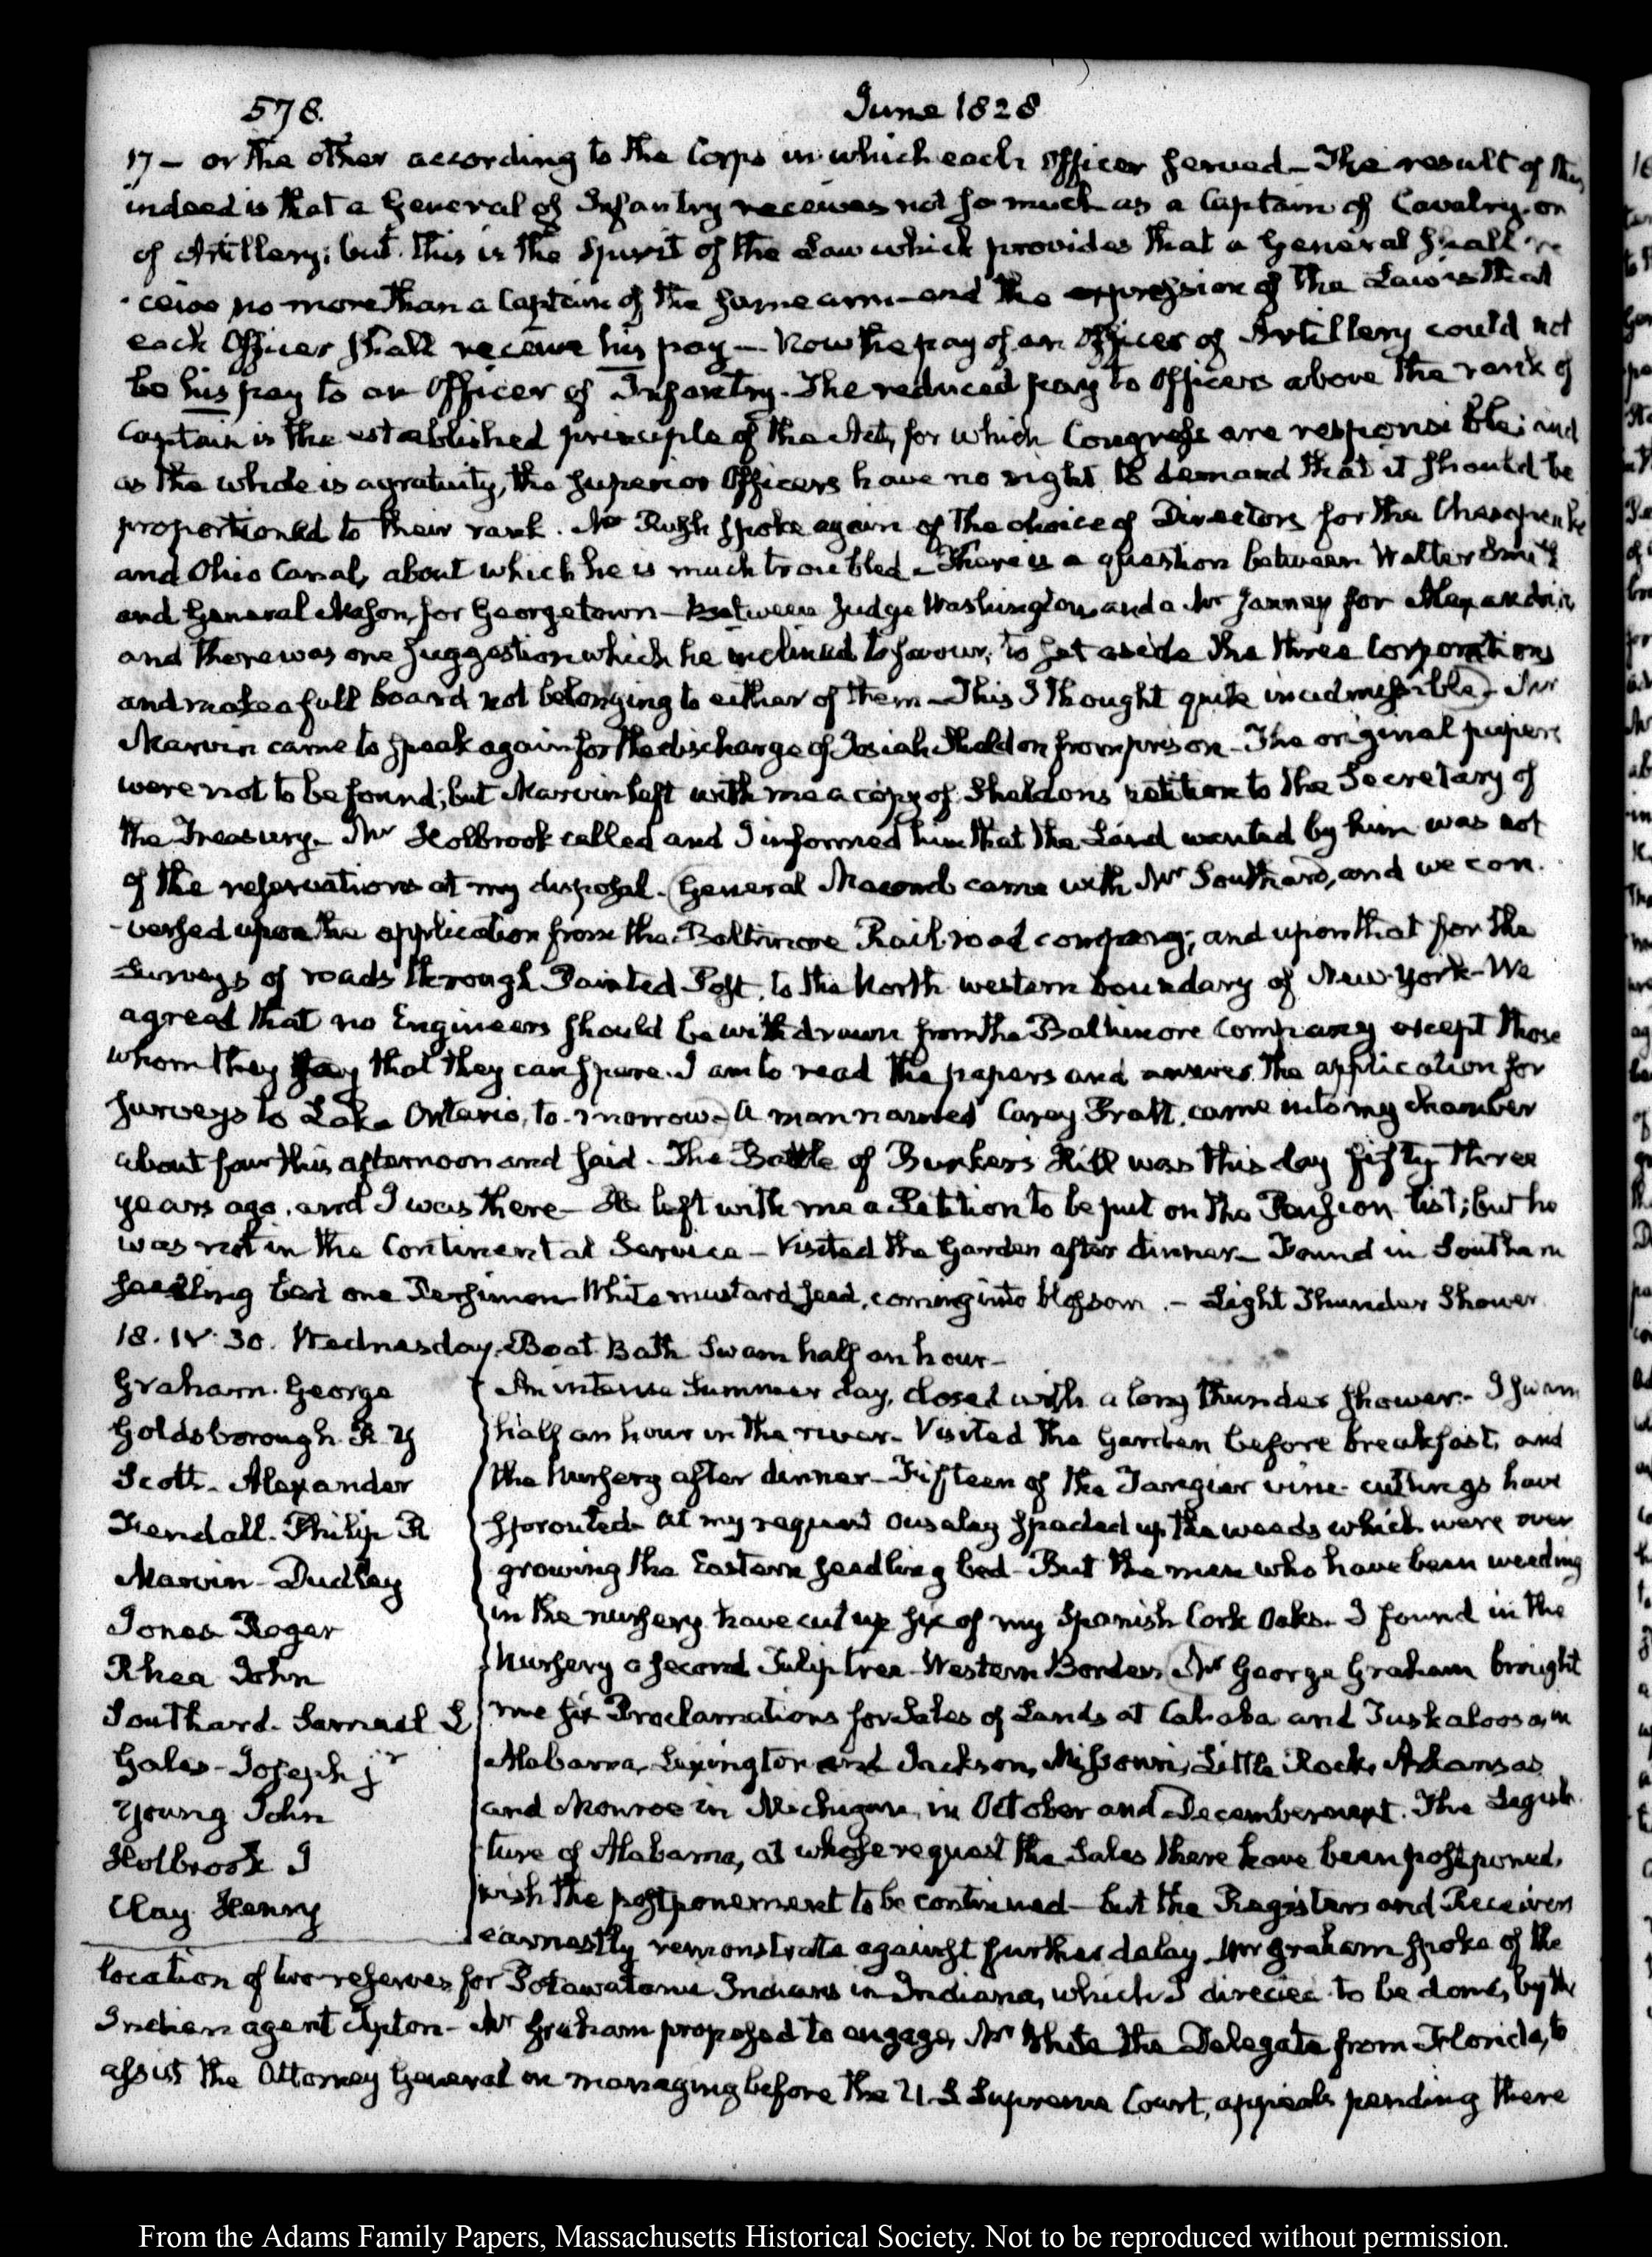 578.
June 1828
17 — or the other according to the Corps in which each Officer served — The result of this
indeed is that a General of Infantry receives not so much as a Captain of Cavalry or
of Artillery; but this is the Spirit of the Law which provides that a General shall re
-ceive no more than a Captain of the same arm — and the expression of the Law is that
each Officer shall receive his pay — Now the pay of an Officer of Artillery could not
be his pay to an Officer of Infantry. The reduced pay to Officers above the rank of
Captain is the established principle of the Act, for which Congress are responsible; and
as the whole is a gratuity, the superior Officers have no right to demand that it should be
proportioned to their rank. Mr Rush spoke again of the choice of Directors for the Chesapeake
and Ohio Canal, about which he is much troubled — There is a question between Walter Smith
and General Mason, for Georgetown — Between Judge Washington and a Mr Janney for Alexandria
and there was one suggestion which he inclined to favour, to set aside the three Corporations
and make a full board not belonging to either of them — This I thought quite inadmissible — Mr
Marvin came to speak again for the discharge of Josiah Sheldon from prison — The original papers
were not to be found; but Marvin left with me a copy of Sheldons petition to the Secretary of
the Treasury — Mr Holbrook called and I informed him that the Land wanted by him was not
of the reservations at my disposal. General Macomb came with Mr Southard, and we con.
-versed upon the application from the Baltimore Rail-road company; and upon that for the
Surveys of roads through Painted Post, to the North western boundary of New-York — We
agreed that no Engineers should be withdrawn from the Baltimore Company except those
whom they say that they can spare. I am to read the papers and answer the application for
surveys to Lake Ontario, to-morrow — A man named Carey Pratt, came into my chamber
about four this afternoon and said — The Battle of Bunker's Hill was this day fifty three
years ago, and I was there — He left with me a Petition to be put on the Pension list; but he
was not in the Continental Service — Visited the Garden after dinner — Found in Southern
seedling bed one Persimon. White mustard seed, coming into blossom. — Light Thunder Shower
18. IV. 30. Wednesday. Boat Bath Swam half an hour —
Graham. George
Goldsborough. R. Y
Scott. Alexander
Fendall. Philip R
Marvin — Dudley
Jones Roger
Rhea John
Southard. Samuel L
Gales — Joseph jr
Young John
Holbrook J
Clay Henry
An intense Summer day, closed with a long thunder shower — I swam
half an hour in the river — Visited the Garden before breakfast, and
the Nursery after dinner — Fifteen of the Tangier vine cuttings have
sprouted — At my request Ousley spaded up the weeds which were over
growing the Eastern seedling bed — But the men who have been weeding
in the nursery have cut up six of my Spanish Cork Oaks. I found in the
Nursery a second Tulip tree — Western Border. Mr George Graham brought
me six Proclamations for Sales of Lands at Cahaba and Tuskaloosa, in
Alabama, Lexington and Jackson, Missouri, Little Rock, Arkansas
and Monroe in Michigan, in October and December next. The Legisla-
ture of Alabama, at whose request the Sales there have been postponed,
wish the postponement to be continued — but the Registers and Receivers
earnestly remonstrate against further delay — Mr Graham spoke of the
location of two reserves for Potawatomi Indians in Indiana, which I directed to be done, by the
Indian agent Tipton — Mr Graham proposed to engage, Mr White the Delegate from Florida, to
assist the Attorney General in managing before the U.S. Supreme Court, appeals pending there
From the Adams Family Papers, Massachusetts Historical Society. Not to be reproduced without permission.